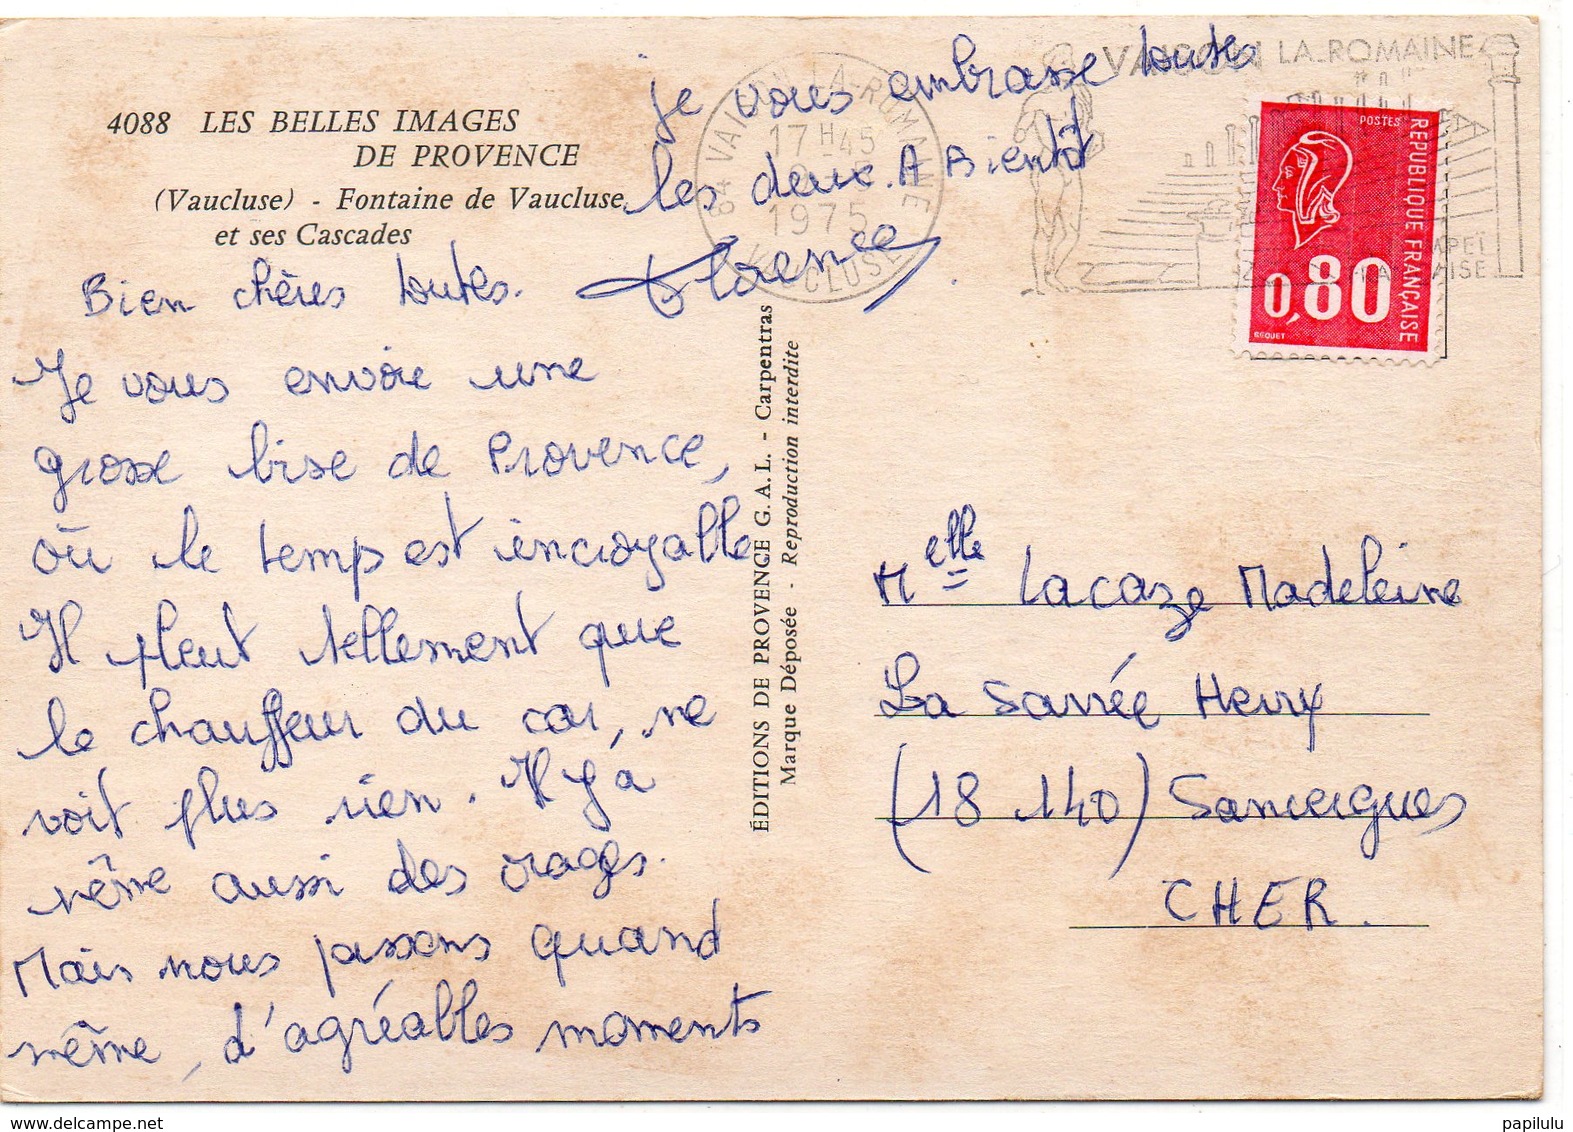 4088 LES BELLES IMAGES
DE PROVENCE
(Vaucluse) - Fontaine de Vaucluse,
et ses Cascades
Bien chères toutes.
Je vous envoie une
grosse bise de Provence,
où le temps est incroyable
Il pleut tellement que
le chauffeur du car, ne
voit plus rien. Il y a
même aussi des orages.
Mais nous passons quand
même, d'agréables moments
je vous embrasse toutes
les deux. A Bientôt
Florence
ÉDITIONS DE PROVENCE G. A. L. - Carpentras
Marque Déposée - Reproduction interdite
84 VAISON-LA-ROMAINE
17 H 45
1975
VAUCLUSE
VAISON LA ROMAINE
POSTES
REPUBLIQUE FRANÇAISE
0,80
BEQUET
Melle Lacaze Madeleine
La Sarrée Herry
(18 140) Sancergues
CHER.
papilulu
www.delcampe.net